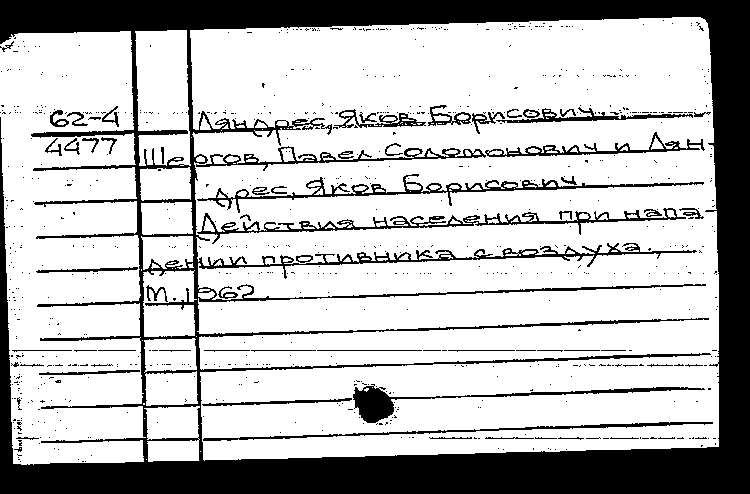 62-4 Ляндрес, Яков Борисович.
4477 Шергов, Павел Соломонович и Лян-
дрес, Яков Борисович.
Действия населения при напа-
дении противника с воздуха.,
М., 1962.